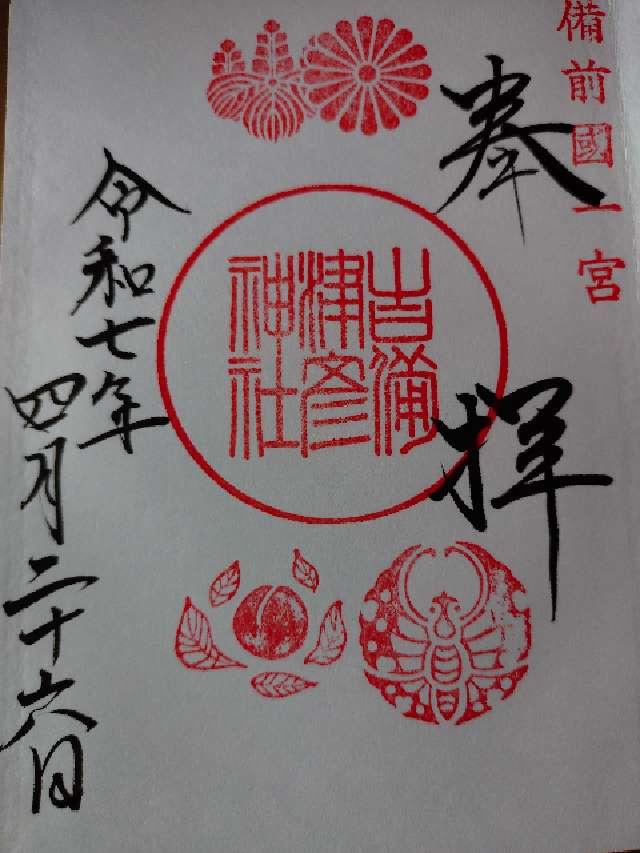 備前國一宮
奉拝
吉備
津彦
神社
令和七年
四月二十六日